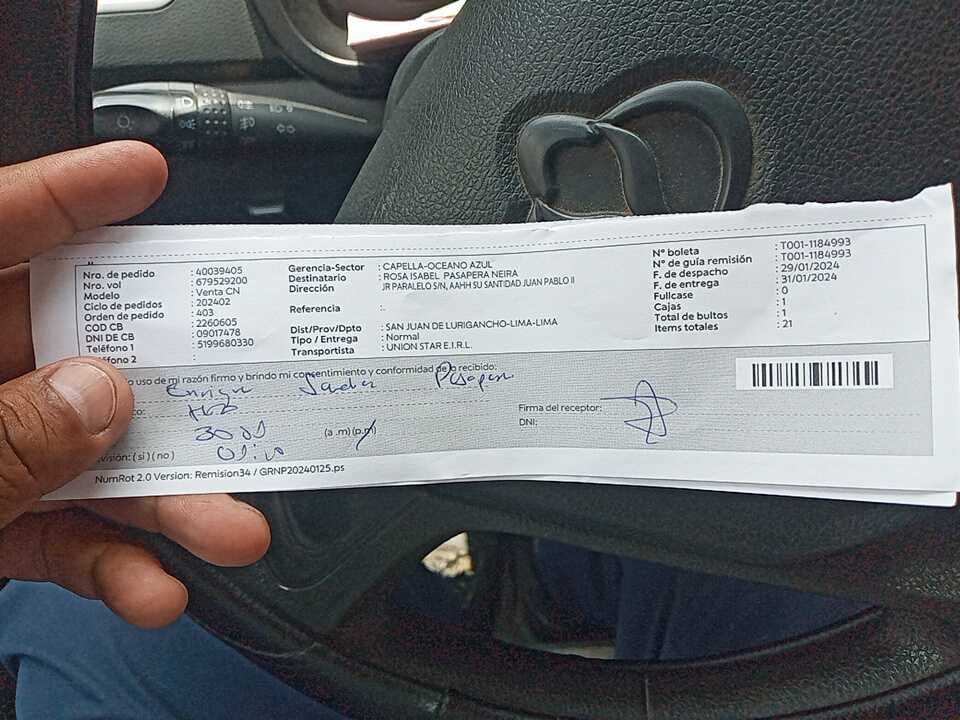 Nro. de pedido : 40039405
Nro. vol : 679529200
Modelo : Venta CN
Ciclo de pedidos : 202402
Orden de pedido : 403
COD CB : 2260605
DNI DE CB : 09017478
Teléfono 1 : 5199680330
éfono 2 :
Gerencia-Sector : CAPELLA-OCEANO AZUL
Destinatario : ROSA ISABEL PASAPERA NEIRA
Dirección JR PARALELO S/N, AAHH SU SANTIDAD JUAN PABLO II
Referencia :
Dist/Prov/Dpto : SAN JUAN DE LURIGANCHO-LIMA-LIMA
Tipo / Entrega : Normal
Transportista : UNION STAR E.I.R.L.
N° boleta : T001-1184993
N° de guía remisión : T001-1184993
F. de despacho : 29/01/2024
F. de entrega : 31/01/2024
Fullcase : 0
Cajas : 1
Total de bultos : 1
Items totales : 21
o uso de mi razón firmo y brindo mi consentimiento y conformidad de lo recibido:
(a .m) (p.m)
visión: ( si ) ( no )
Firma del receptor:
DNI:
NumRot 2.0 Version: Remision34 / GRNP20240125.ps